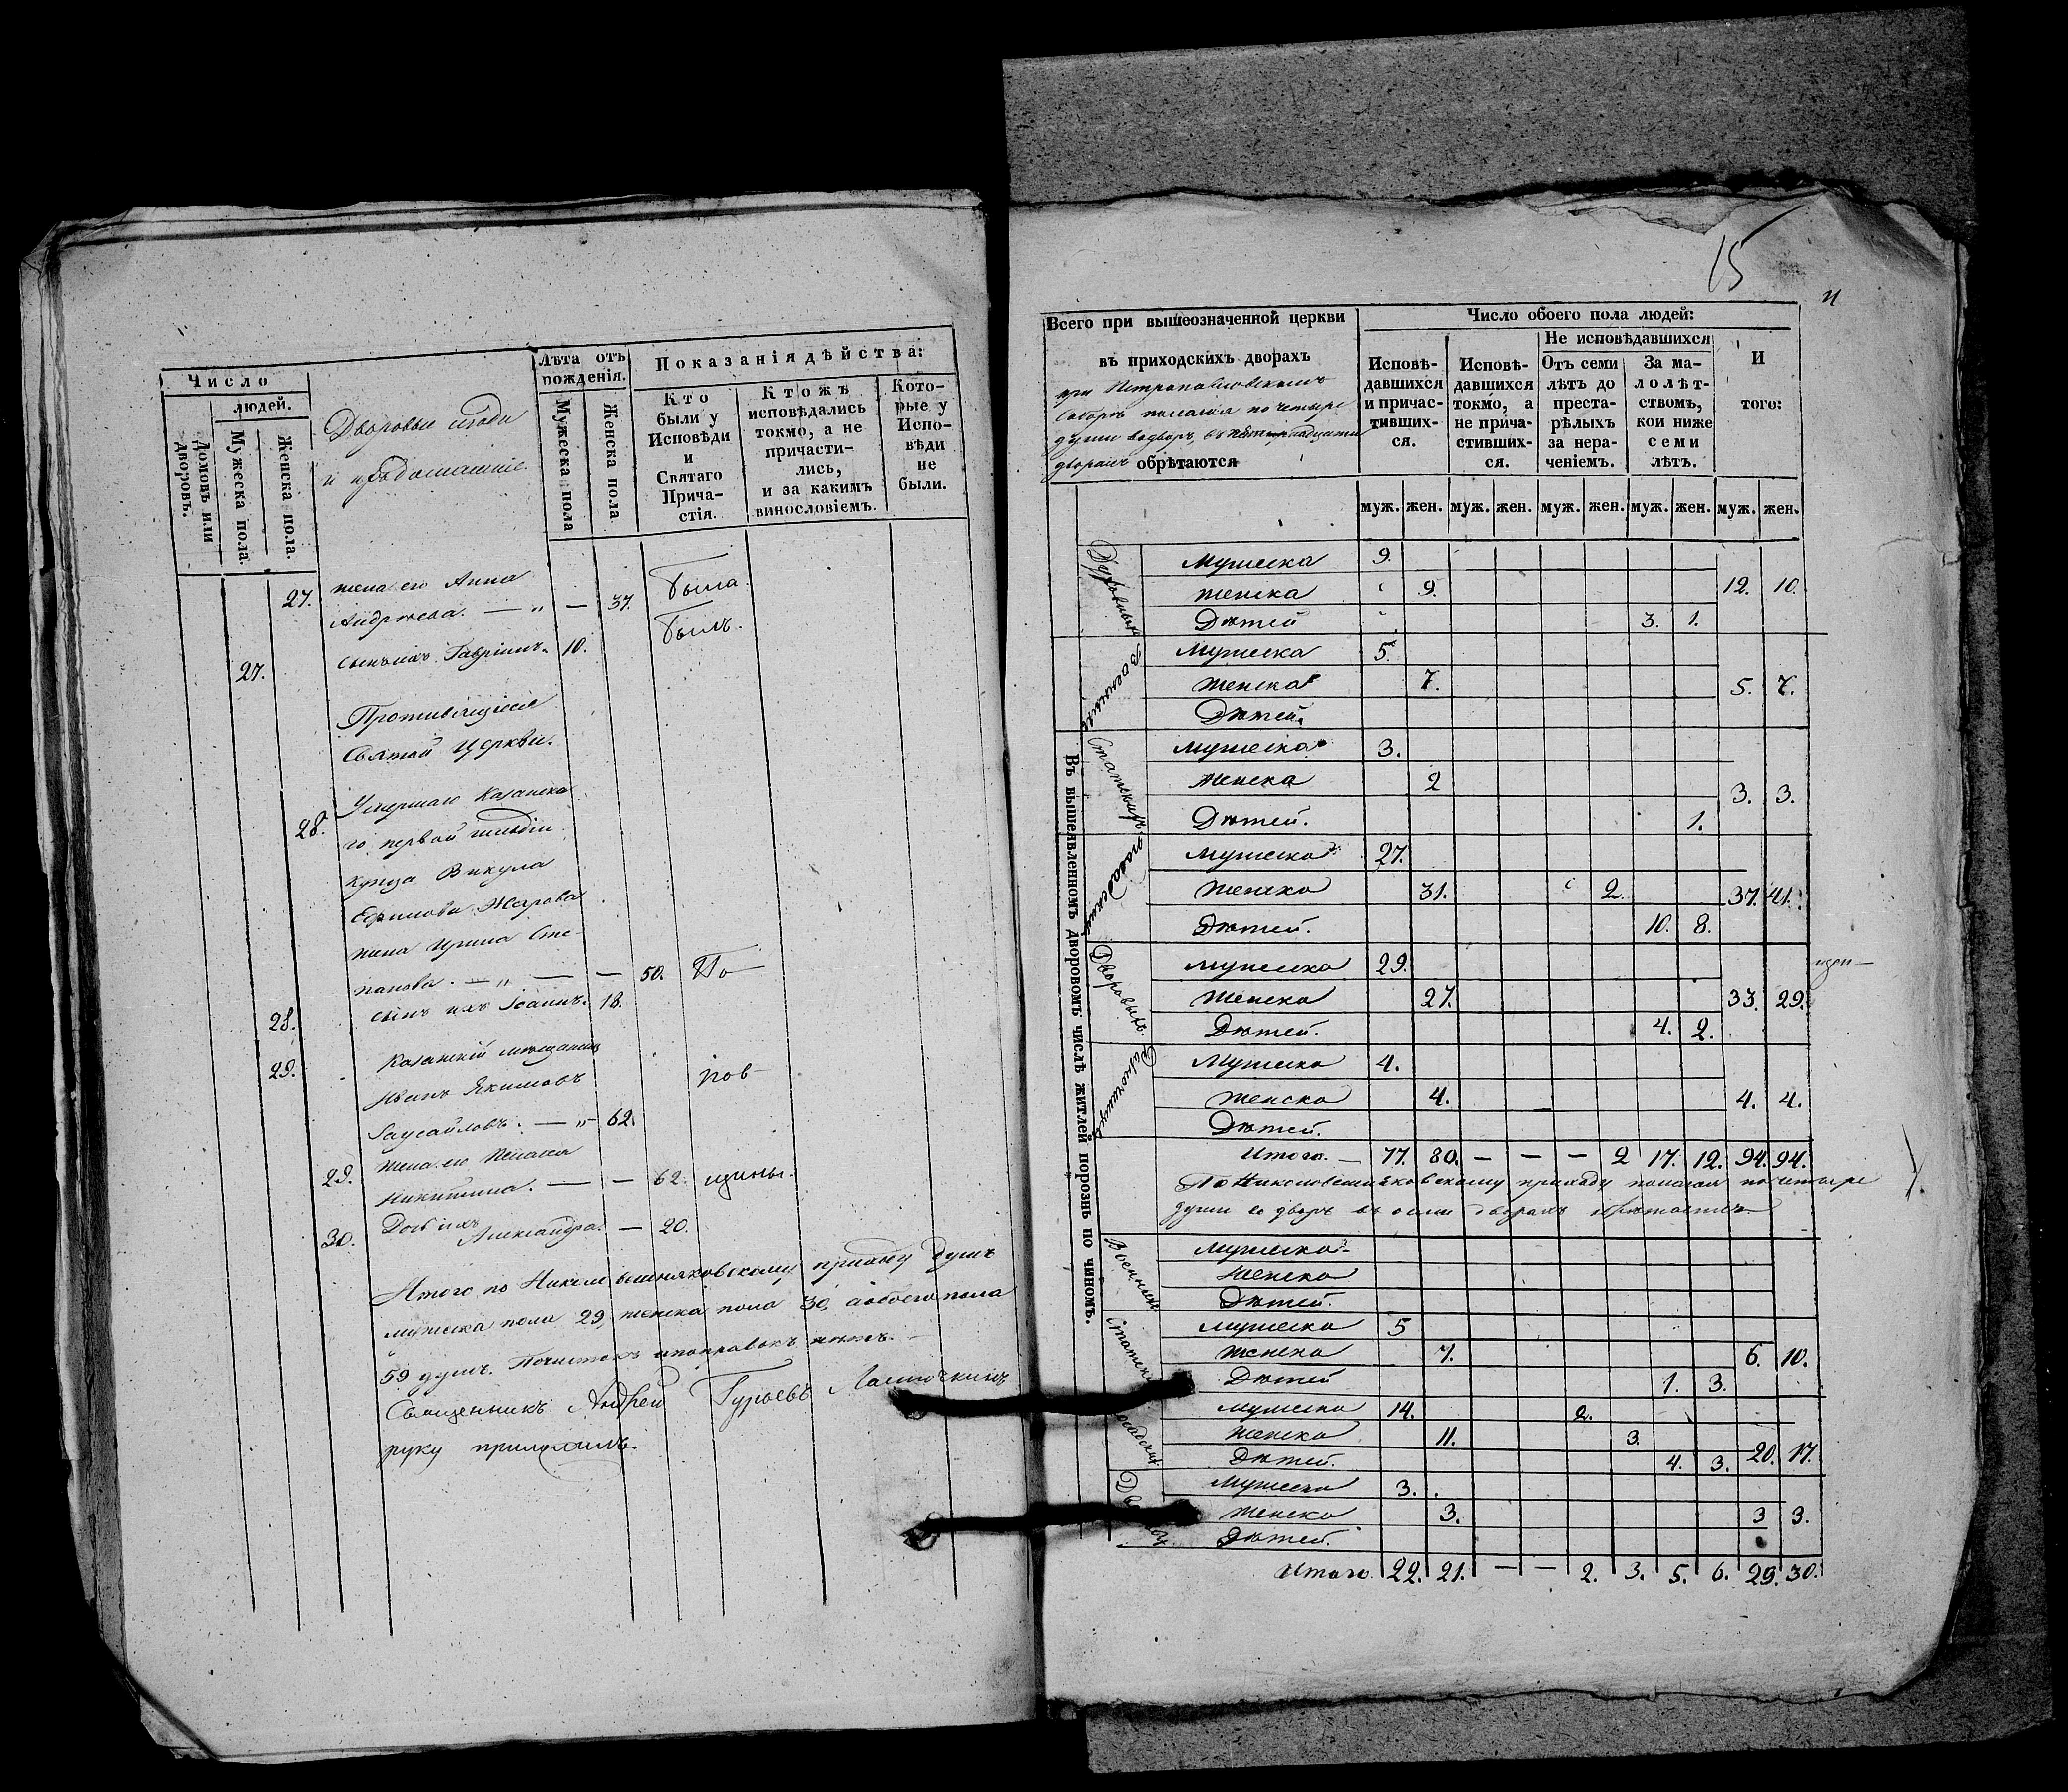 Число
людей.
Домовъ или дворовъ.
Мужеска пола.
Женска пола.
Дворовые люди
и
Лѣта отъ рожденія.
Мужеска пола
Женска пола
Показанія дѣйства:
Кто были у Исповѣди и Святаго Причастія.
Ктожъ исповѣдались токмо, а не причастились, и за какимъ винословіемъ.
Которые у Исповѣди не были.
27. жена его Анна
Андреева. — „ — 37. Была.
27. сынъ ихъ Гавріилъ. 10. Былъ.
Противящіеся
Святой Церкви.
28. Умершаго Казанска
го первой гильдіи
купца Викула
Ефимова Жарова
жена Ирина Сте-
панова. — „ — — 50. По—
28. сынъ ихъ Іоаннъ. 18.
29. Казанскій мещанинъ
Иванъ Якимовъ пов—
— „ — 62.
29. жена его Пелагея
Никитина. — — 62. щины.
30. Дочь ихъ
Александра. — 20.
Итого по Николовешняковскому приходу душъ
мужеска пола 29, женска пола 30, а обоего пола
59 душъ. Почистокъ и поправокъ нѣтъ. —
Священникъ Андрей Гурьевъ Ласточкинъ
руку приложилъ.
15
Всего при вышеозначенной церкви
въ приходскихъ дворахъ
при Петропавловскомъ
Соборѣ полагая по четыре
души во дворѣ, въ
дворахъ обрѣтаются
Число обоего пола людей:
Исповѣдавшихся и причастившихся.
Исповѣдавшихся токмо, а не причастившихся.
Не исповѣдавшихся
Отъ семи лѣтъ до престарѣлыхъ за нерачені­емъ.
За малолѣтствомъ, кои ниже семи лѣтъ.
И того:
муж. жен. муж. жен. муж. жен. муж. жен. муж. жен.
Въ вышеявленномъ дворовомъ числѣ житлей порознь по чиномъ.
Духовныхъ
Мужеска 9.
Женска 9. 12. 10.
Дѣтей 3. 1.
Военныхъ
Мужеска 5.
Женска 7. 5. 7.
Дѣтей.
Статскихъ.
Мужеска 3.
Женска 2 3. 3.
Дѣтей. 1.
Посадскихъ
Мужеска 27.
Женска 31. 2. 37. 41.
Дѣтей. 10. 8.
Дворовыхъ.
Мужеска 29.
Женска 27. 33. 29.
Дѣтей. 4. 2.
Разночинцевъ
Мужеска 4.
Женска 4. 4. 4.
Дѣтей.
Итого. — 77. 80. — — — 2 17. 12. 94. 94.
По Николовешняковскому приходу полагая по четыре
души во дворѣ въ осми дворахъ обрѣтаются
Военныхъ
Мужеска
Женска
Дѣтей.
Статскихъ
Мужеска 5
Женска 7. 6. 10.
Дѣтей 1. 3.
Посадскихъ
Мужеска 14. 2.
Женска 11. 3. 20. 17.
Дѣтей. 4. 3.
Мужеска 3.
Женска 3. 3 3.
Дѣтей.
Итого. 22. 21. — — 2. 3. 5. 6. 29. 30.